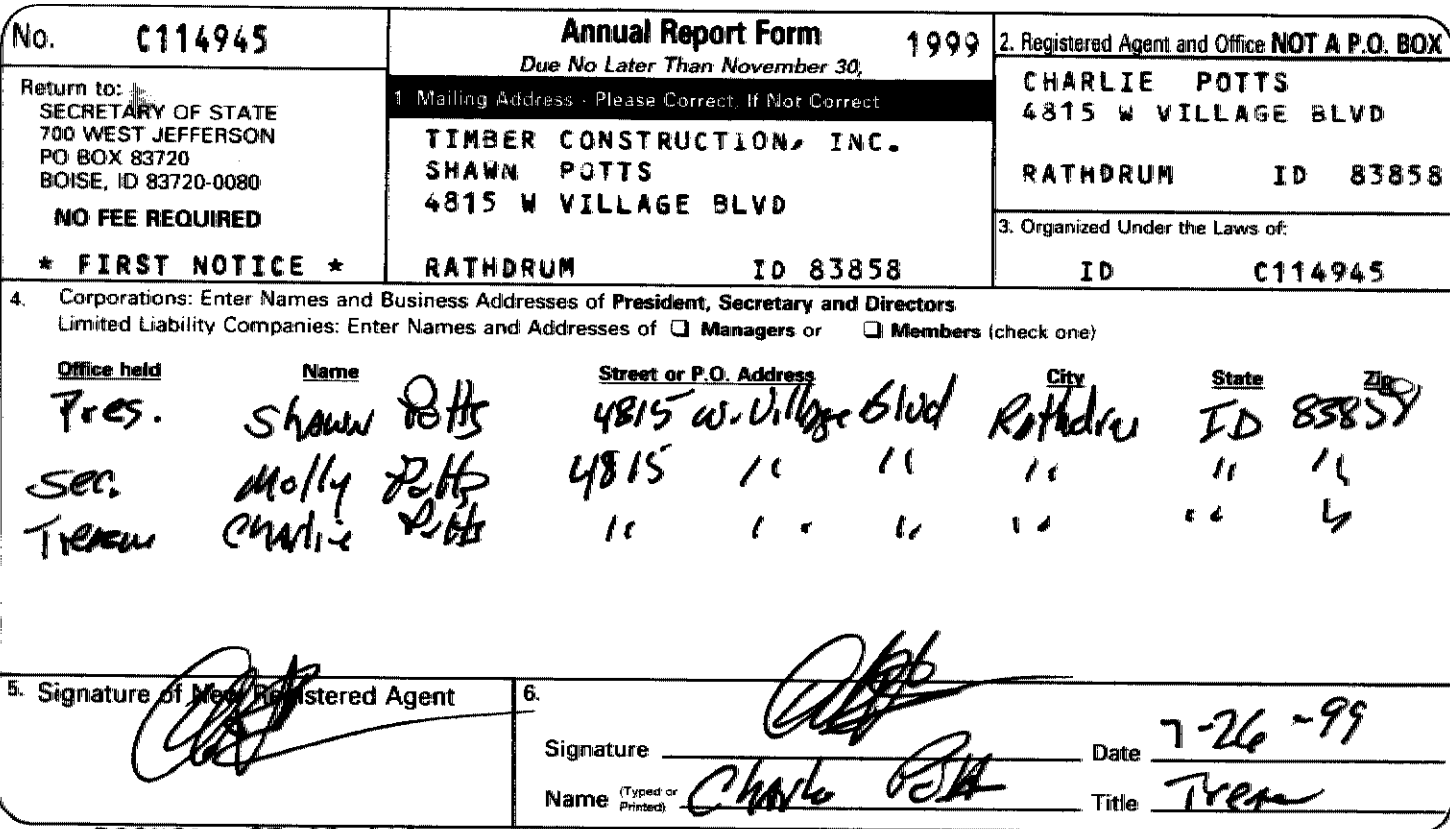 No. C114945
Return to:
SECRETARY OF STATE
700 WEST JEFFERSON
PO BOX 83720
BOISE, ID 83720-0080
NO FEE REQUIRED
* FIRST NOTICE *
Annual Report Form 1999
Due No Later Than November 30,
1 Mailing Address - Please Correct, If Not Correct
TIMBER CONSTRUCTION, INC.
SHAWN POTTS
4815 W VILLAGE BLVD
RATHDRUM ID 83858
2. Registered Agent and Office NOT A P.O. BOX
CHARLIE POTTS
4815 W VILLAGE BLVD
RATHDRUM ID 83858
3. Organized Under the Laws of:
ID C114945
4. Corporations: Enter Names and Business Addresses of President, Secretary and Directors
Limited Liability Companies: Enter Names and Addresses of ❑ Managers or ❑ Members (check one)
Office held Name Street or P.O. Address City State Zip
Pres. Shawn Potts 4815 W. Village Blvd Rathdru ID 83858
Sec. Molly Potts 4815 " " " " "
Charlie Potts " " " " " "
5. Signature of New Registered Agent
6.
Signature Date 7-26-99
Name (Typed or Printed) Potts Title